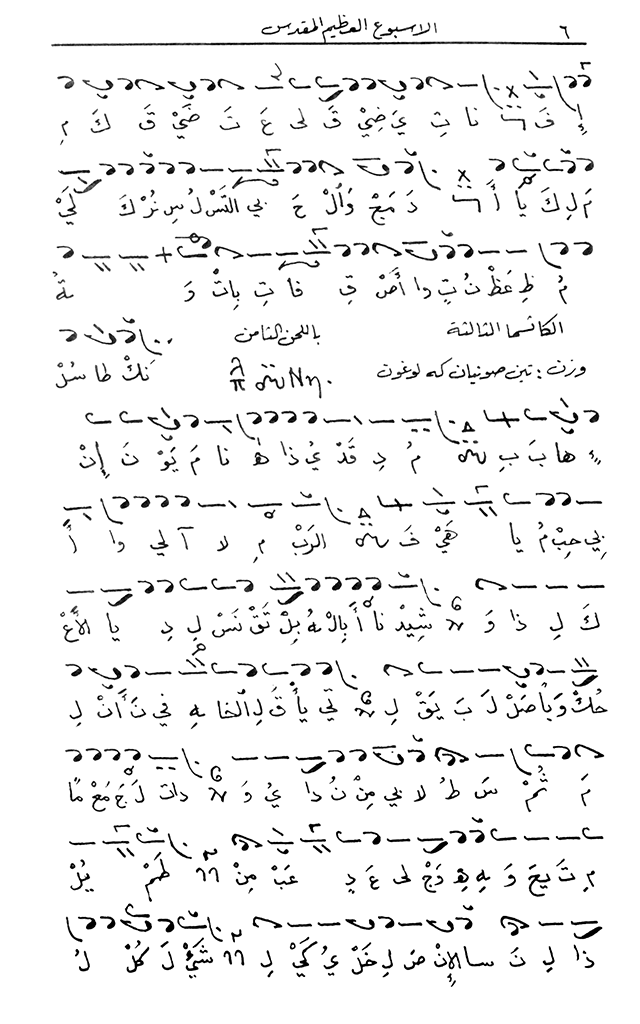 ٦ الاسبوع العظيم المقدس
إِ فَ نا تِ يَ ضِيْ قَ لى عَ تَ ضَيْ قَ كَ مِ
مَ لِ كَ يا أَ دَ مَجْ وَالْ حَ بي التَسْ لُ سِ نُزْ كَ لَيْ
مُ ظِ عَظْ نُ تِ دا أَصْ قِ فا تِ باتْ وَ ةُ
الكاثسما الثالثة باللحن الثامن
وزن : تين صونيان كه لوغون نَكْ طا سُلْ
ءِ ها بَ بِ مُ دِ قَدْ يُ ذا هَ نا مَ يَوْ نَ إِنْ
بِي حِبْ مُ يا هَيْ فَ الرَبْ مِ لا آ لي وا أَ
كَ لِ ذا وَ شِيْدْ نا أَ بِالْ هُ بِلْ تَقْ نَسْ لِ دِ يا الأَعْ
حُكْ لَ بَ يَقْ لِ تي يا قُ لِ الخا هِ في نَ أَنْ لِ
مَ ثُمْ سَ طُ لا بي مِنْ نُ دا يُ وَ دات لَجْ مَعْ مًا
مِ تَ يعَ وَ هِ هِ دَجْ لى عَ دٍ عَبْ مِنْ طَمْ يُلْ
ذا لِ نَ سا الإِنْ صَ لِ خَلْ يُ كَيْ لِ شَيْ لَ كُلْ لُ